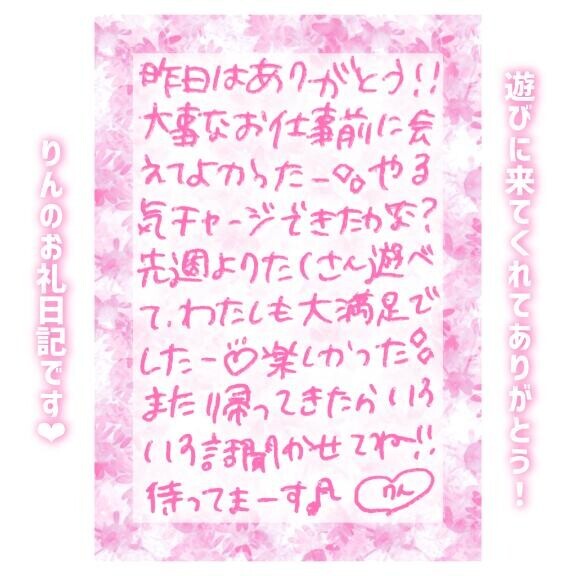 遊びに来てくれてありがとう!
昨日はありがとう!!
大事なお仕事前に会
えてよかったー。。やる
気チャージできたかな?
先週よりたくさん遊べ
て、わたしも大満足で
したー♡楽しかった。。
また帰ってきたらいろ
いろ話聞かせてねー!!
待ってまーす♪ りん
りんのお礼日記です❤